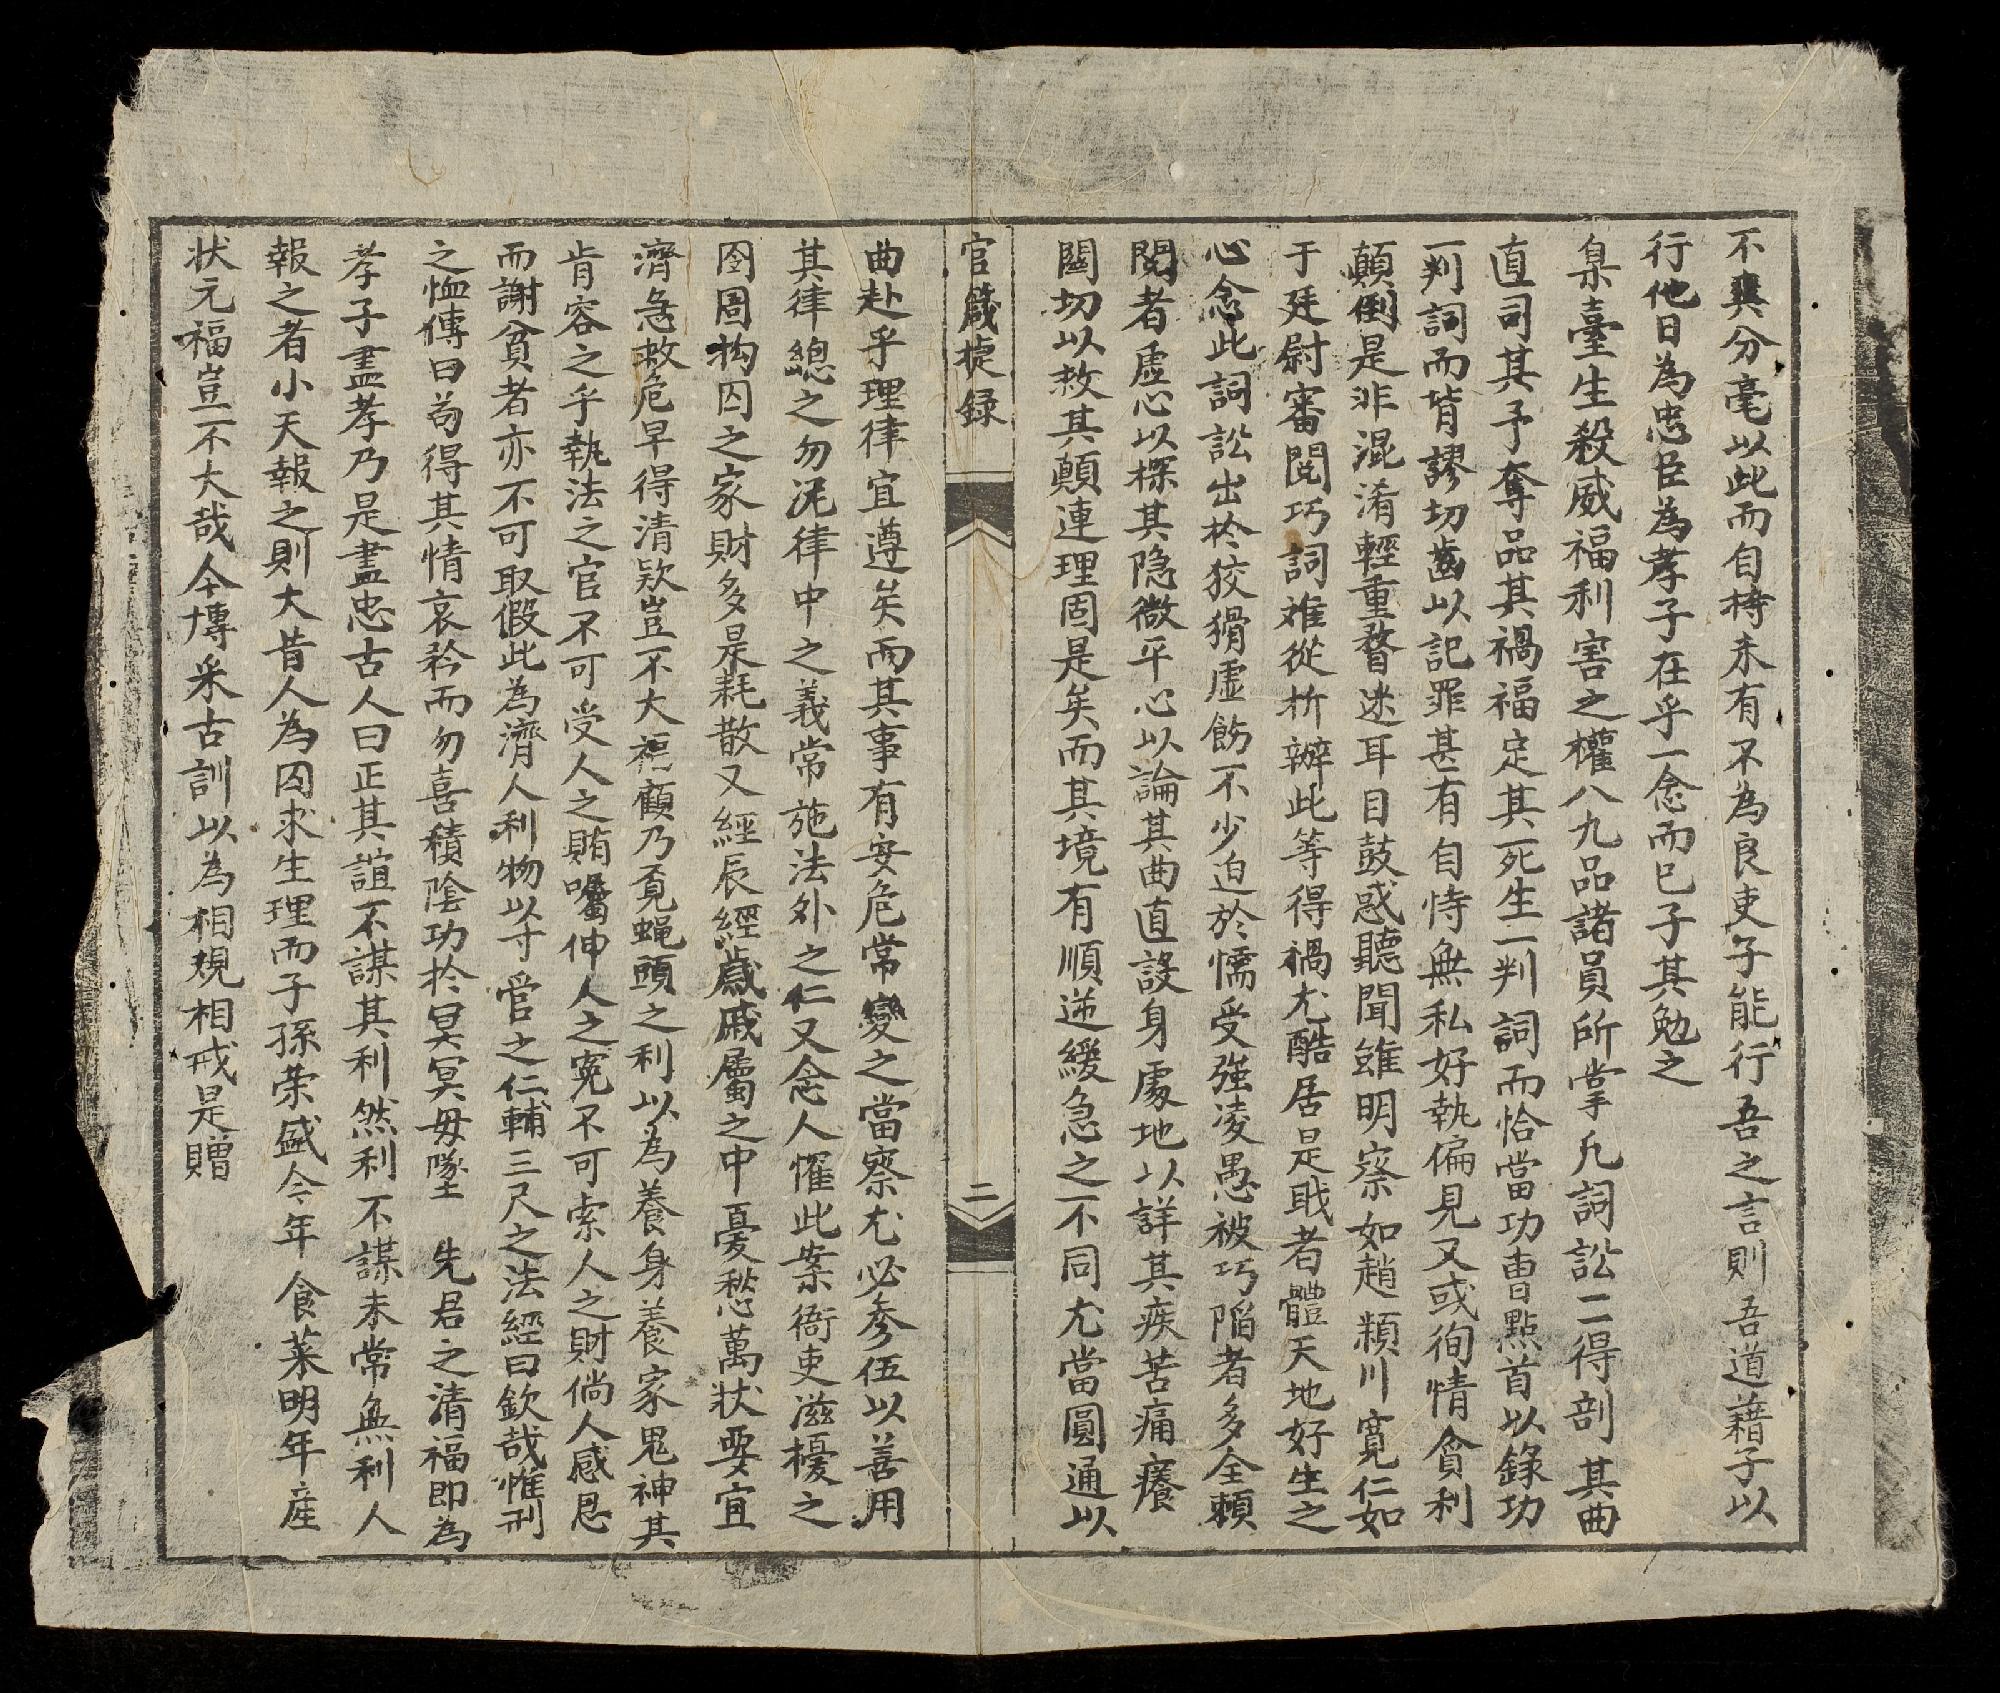 不爽分毫以此而自持未有不為良吏子能行吾之言則吾道藉子以
行他日為忠臣為孝子在乎一念而已子其勉之
臬臺生殺威福利害之權八九品諸員所掌凡詞訟一得剖其曲
直司其予奪品其禍福定其死生一判詞而恰當功曹點首以錄功
一判詞而背謬切齒以記罪甚有自恃無私好執偏見又或徇情貪利
顛倒是非混淆輕重瞀迷耳目鼓惑聽聞雖明察如趙潁川寬仁如
于廷尉審閱巧詞难從折辦此等得禍尤酷居是戝者體天地好生之
心念此詞訟出於狡猾虛飾不少迫於懦受強凌愚被巧陷者多全賴
閱者虛心以探其隐微平心以論其曲直設身處地以詳其疾苦痛癢
關切以救其顛連理固是矣而其境有順逆緩急之不同尤當圓通以
官箴捷録
二
曲赴乎理律宜遵矣而其事有安危常變之當察尤必參伍以善用
其律總之勿泥律中之義常施法外之仁又念人懼此案衙吏滋擾之
囹圄拘囚之家財多是耗散又經辰經歲戚屬之中憂愁萬状要宜
濟急救危早得清欵豈不大福顧乃覔蝇頭之利以為養身養家鬼神其
肯容之乎執法之官不可受人之賄囑伸人之寃不可索人之財倘人感恩
而謝貧者亦不可取假此為濟人利物以守官之仁輔三尺之法經曰欽哉惟刑
之恤傳曰苟得其情哀矜而勿喜積陰功於冥冥毋墜 先君之清福即為
孝子盡孝乃是盡忠古人曰正其誼不謀其利然利不謀未常無利人
報之者小天報之則大昔人為囚求生理而子孫荣盛今年食菜明年産
状元福豈不大哉今博采古訓以為相規相戒是贈